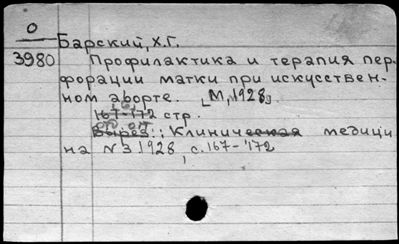 О
3980
Барский, Х.Г.
Профилактика и терапия пер-
форации матки при искусствен-
ном аборте. [М, 1928].
167-172 стр.
Вырез.: Клиническая медици
на N 3 1928, с. 167-172